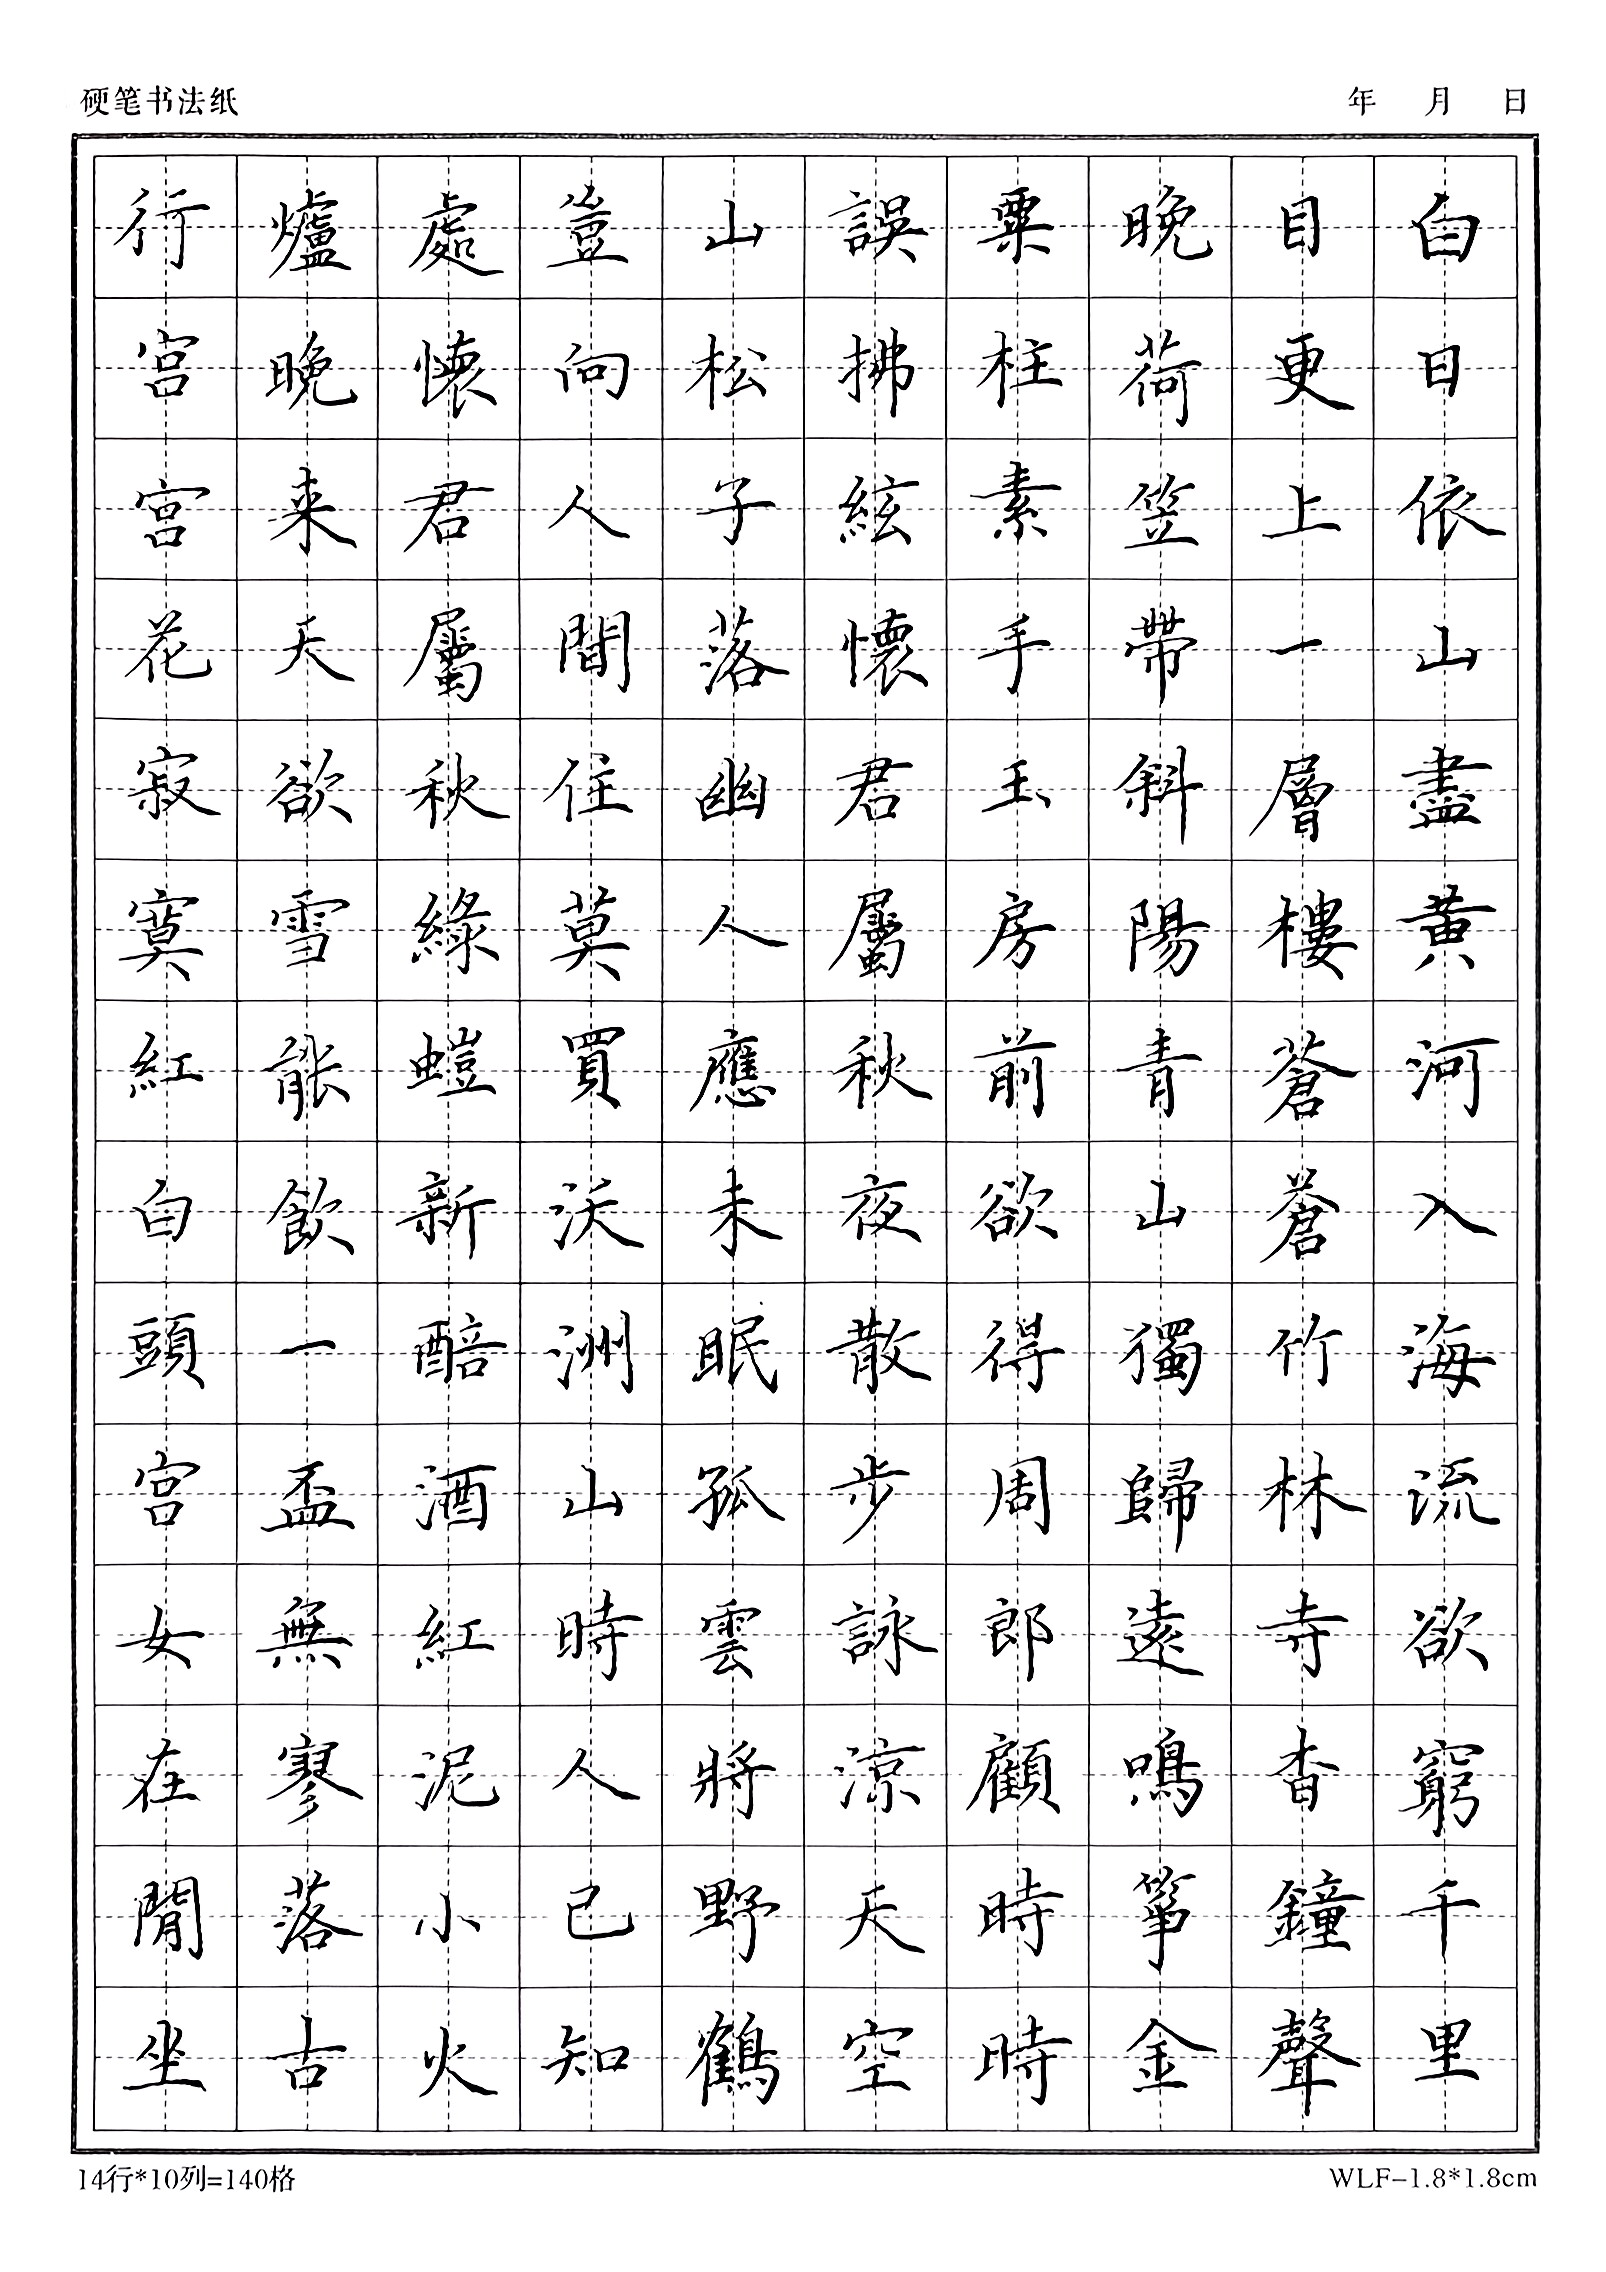 硬笔书法纸 年 月 日
白日依山盡黄河入海流欲窮千里
目更上一層樓蒼蒼竹林寺杳鐘聲
晚荷笠帶斜陽青山獨歸遠鳴箏金
粟柱素手玉房前欲得周郎顧時時
誤拂絃懷君屬秋夜散步詠涼天空
山松子落幽人應未眠孤雲將野鶴
豈向人間住莫買沃洲山時人已知
處懷君屬秋綠螘新醅酒紅泥小火
爐晚来天欲雪能飲一盃無寥落古
行宮宮花寂寞紅白頭宮女在閒坐
14行*10列=140格 WLF-1.8*1.8cm